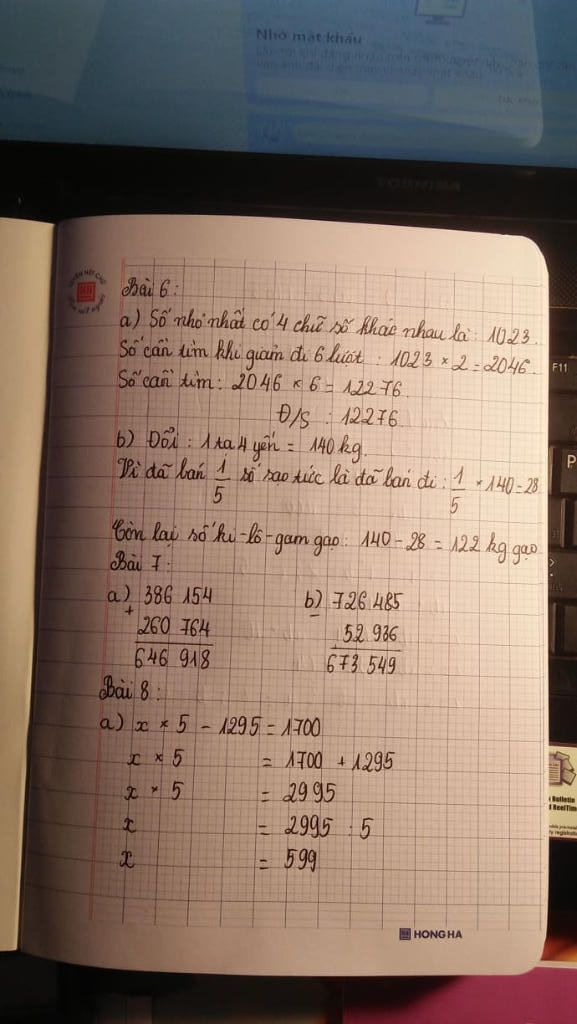 Nhớ mật khẩu
TOSHIBA
F11
Bài 6 :
a) Số nhỏ nhất có 4 chữ số khác nhau là : 1023.
Số cần tìm khi giảm đi 6 lượt : 1023 × 2 = 2046.
Số cần tìm : 2046 × 6 = 12276.
Đ/S : 12276.
b) Đổi : 1 tạ 4 yến = 140 kg.
Vì đã bán 1/5 số gạo tức là đã bán đi : 1/5 × 140 = 28
Còn lại số ki-lô-gam gạo : 140 - 28 = 122 kg gạo
Bài 7 :
a) 386 154 b) 726 485
+ -
260 764 52 936
646 918 673 549
Bài 8 :
a) x × 5 - 1295 = 1700
x × 5 = 1700 + 1295
x × 5 = 2995
x = 2995 : 5
x = 599
HONG HA